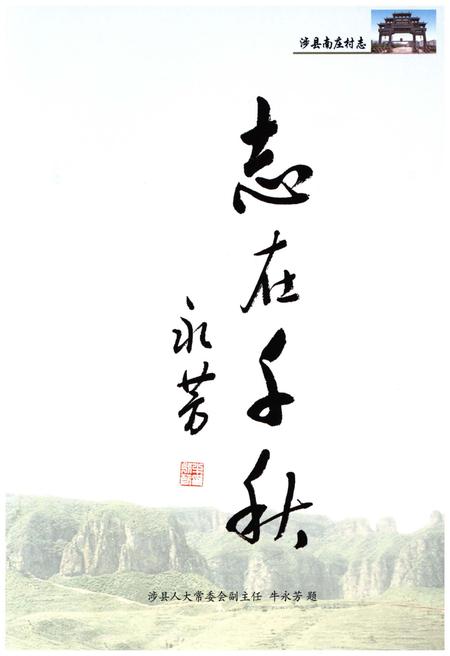 涉县南庄村志
志在千秋
永芳
涉县人大常委会副主任 牛永芳 题